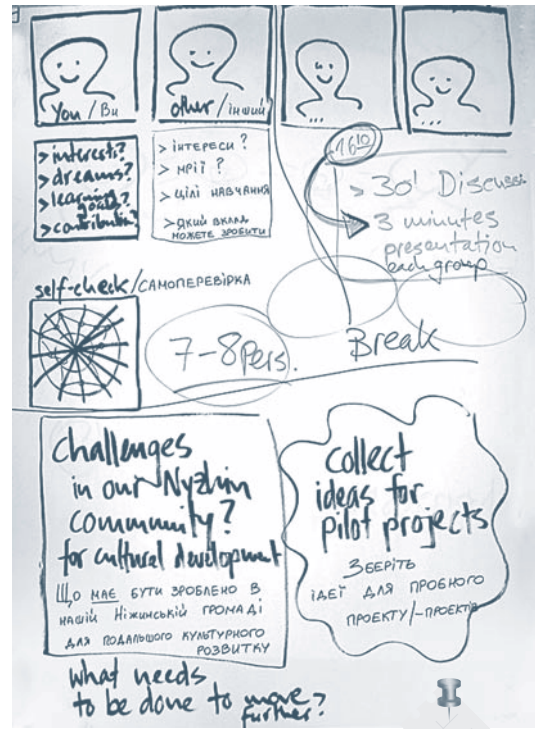 You / Ви
other / інший
...
...
> interests?
> dreams?
> learning goals?
> contribution?
> інтереси?
> мрії?
> цілі навчання
> який вклад
можете зробити
16 10
> 30' Discuss
3 minutes
presentation
each group
self-check/самоперевірка
7-8 Pers.
Break
Challenges
in our Nyzhin
community?
for cultural development
Що має бути зроблено в
нашій Ніжинській громаді
для подальшого культурного
розвитку
what needs
to be done to move
further?
collect
ideas for
pilot projects
Зберіть
ідеї для пробного
проекту/-проектів